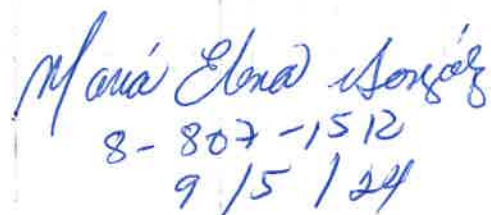 María Elena González
8-807-1512
9/5/24